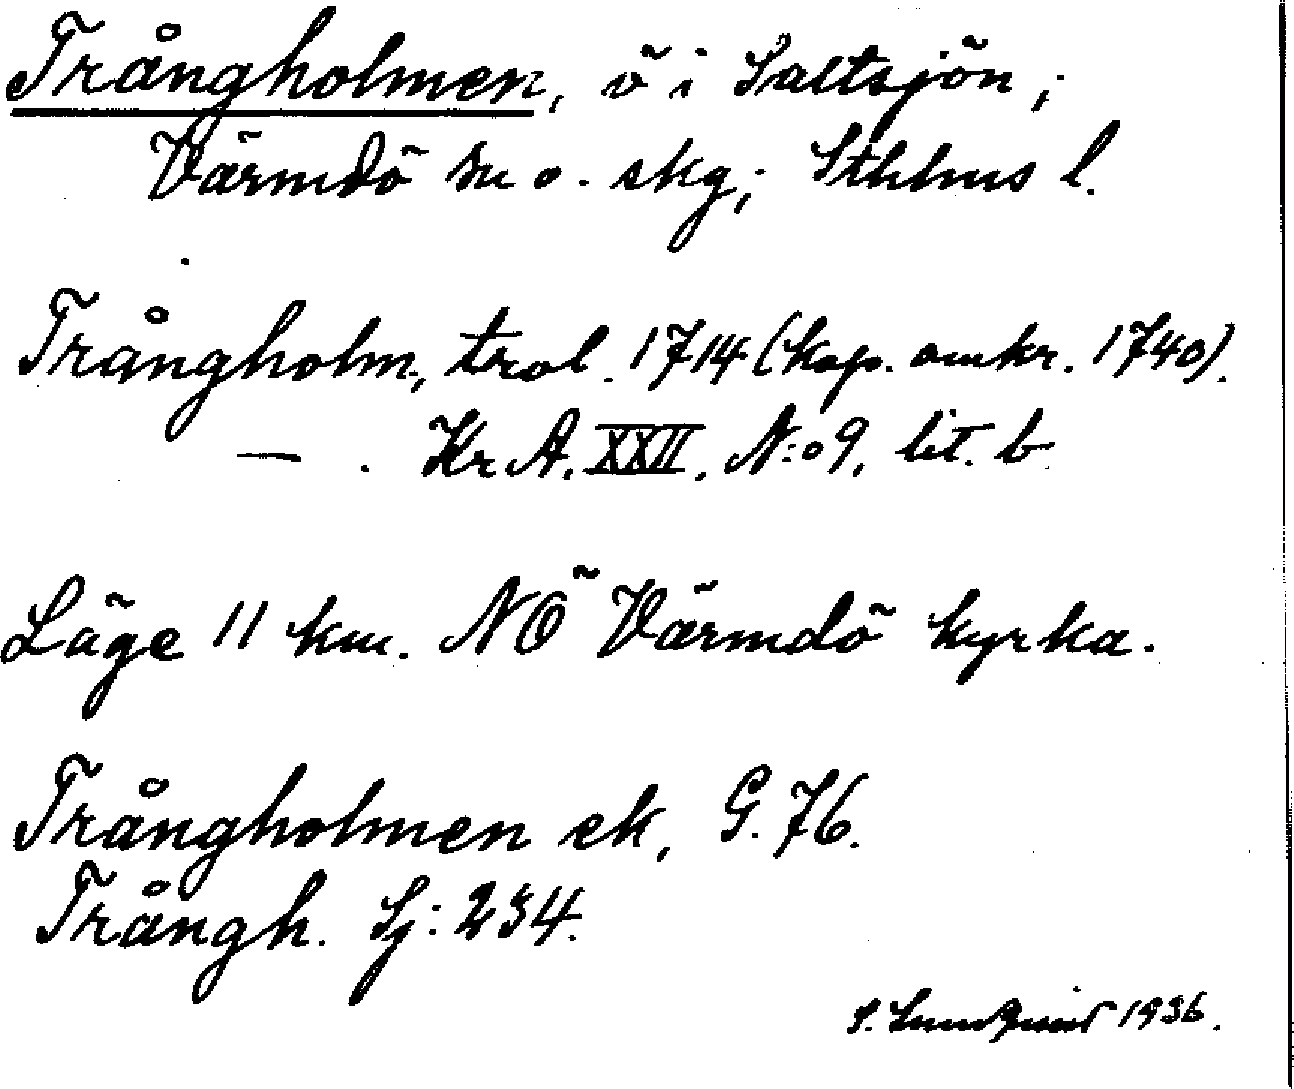 Trångholmen, ö i Saltsjön;
Värmdö sn o. skg; Sthlms l.
Trångholm, trol. 1714 (kop. omkr. 1740).
— . Kr A. XXII. N:o 9, lit. b
Läge 11 km. NÖ Värmdö kyrka.
Trångholmen ek, G. 76.
Trångh. Sj: 234.
S. Lundquist 1936.